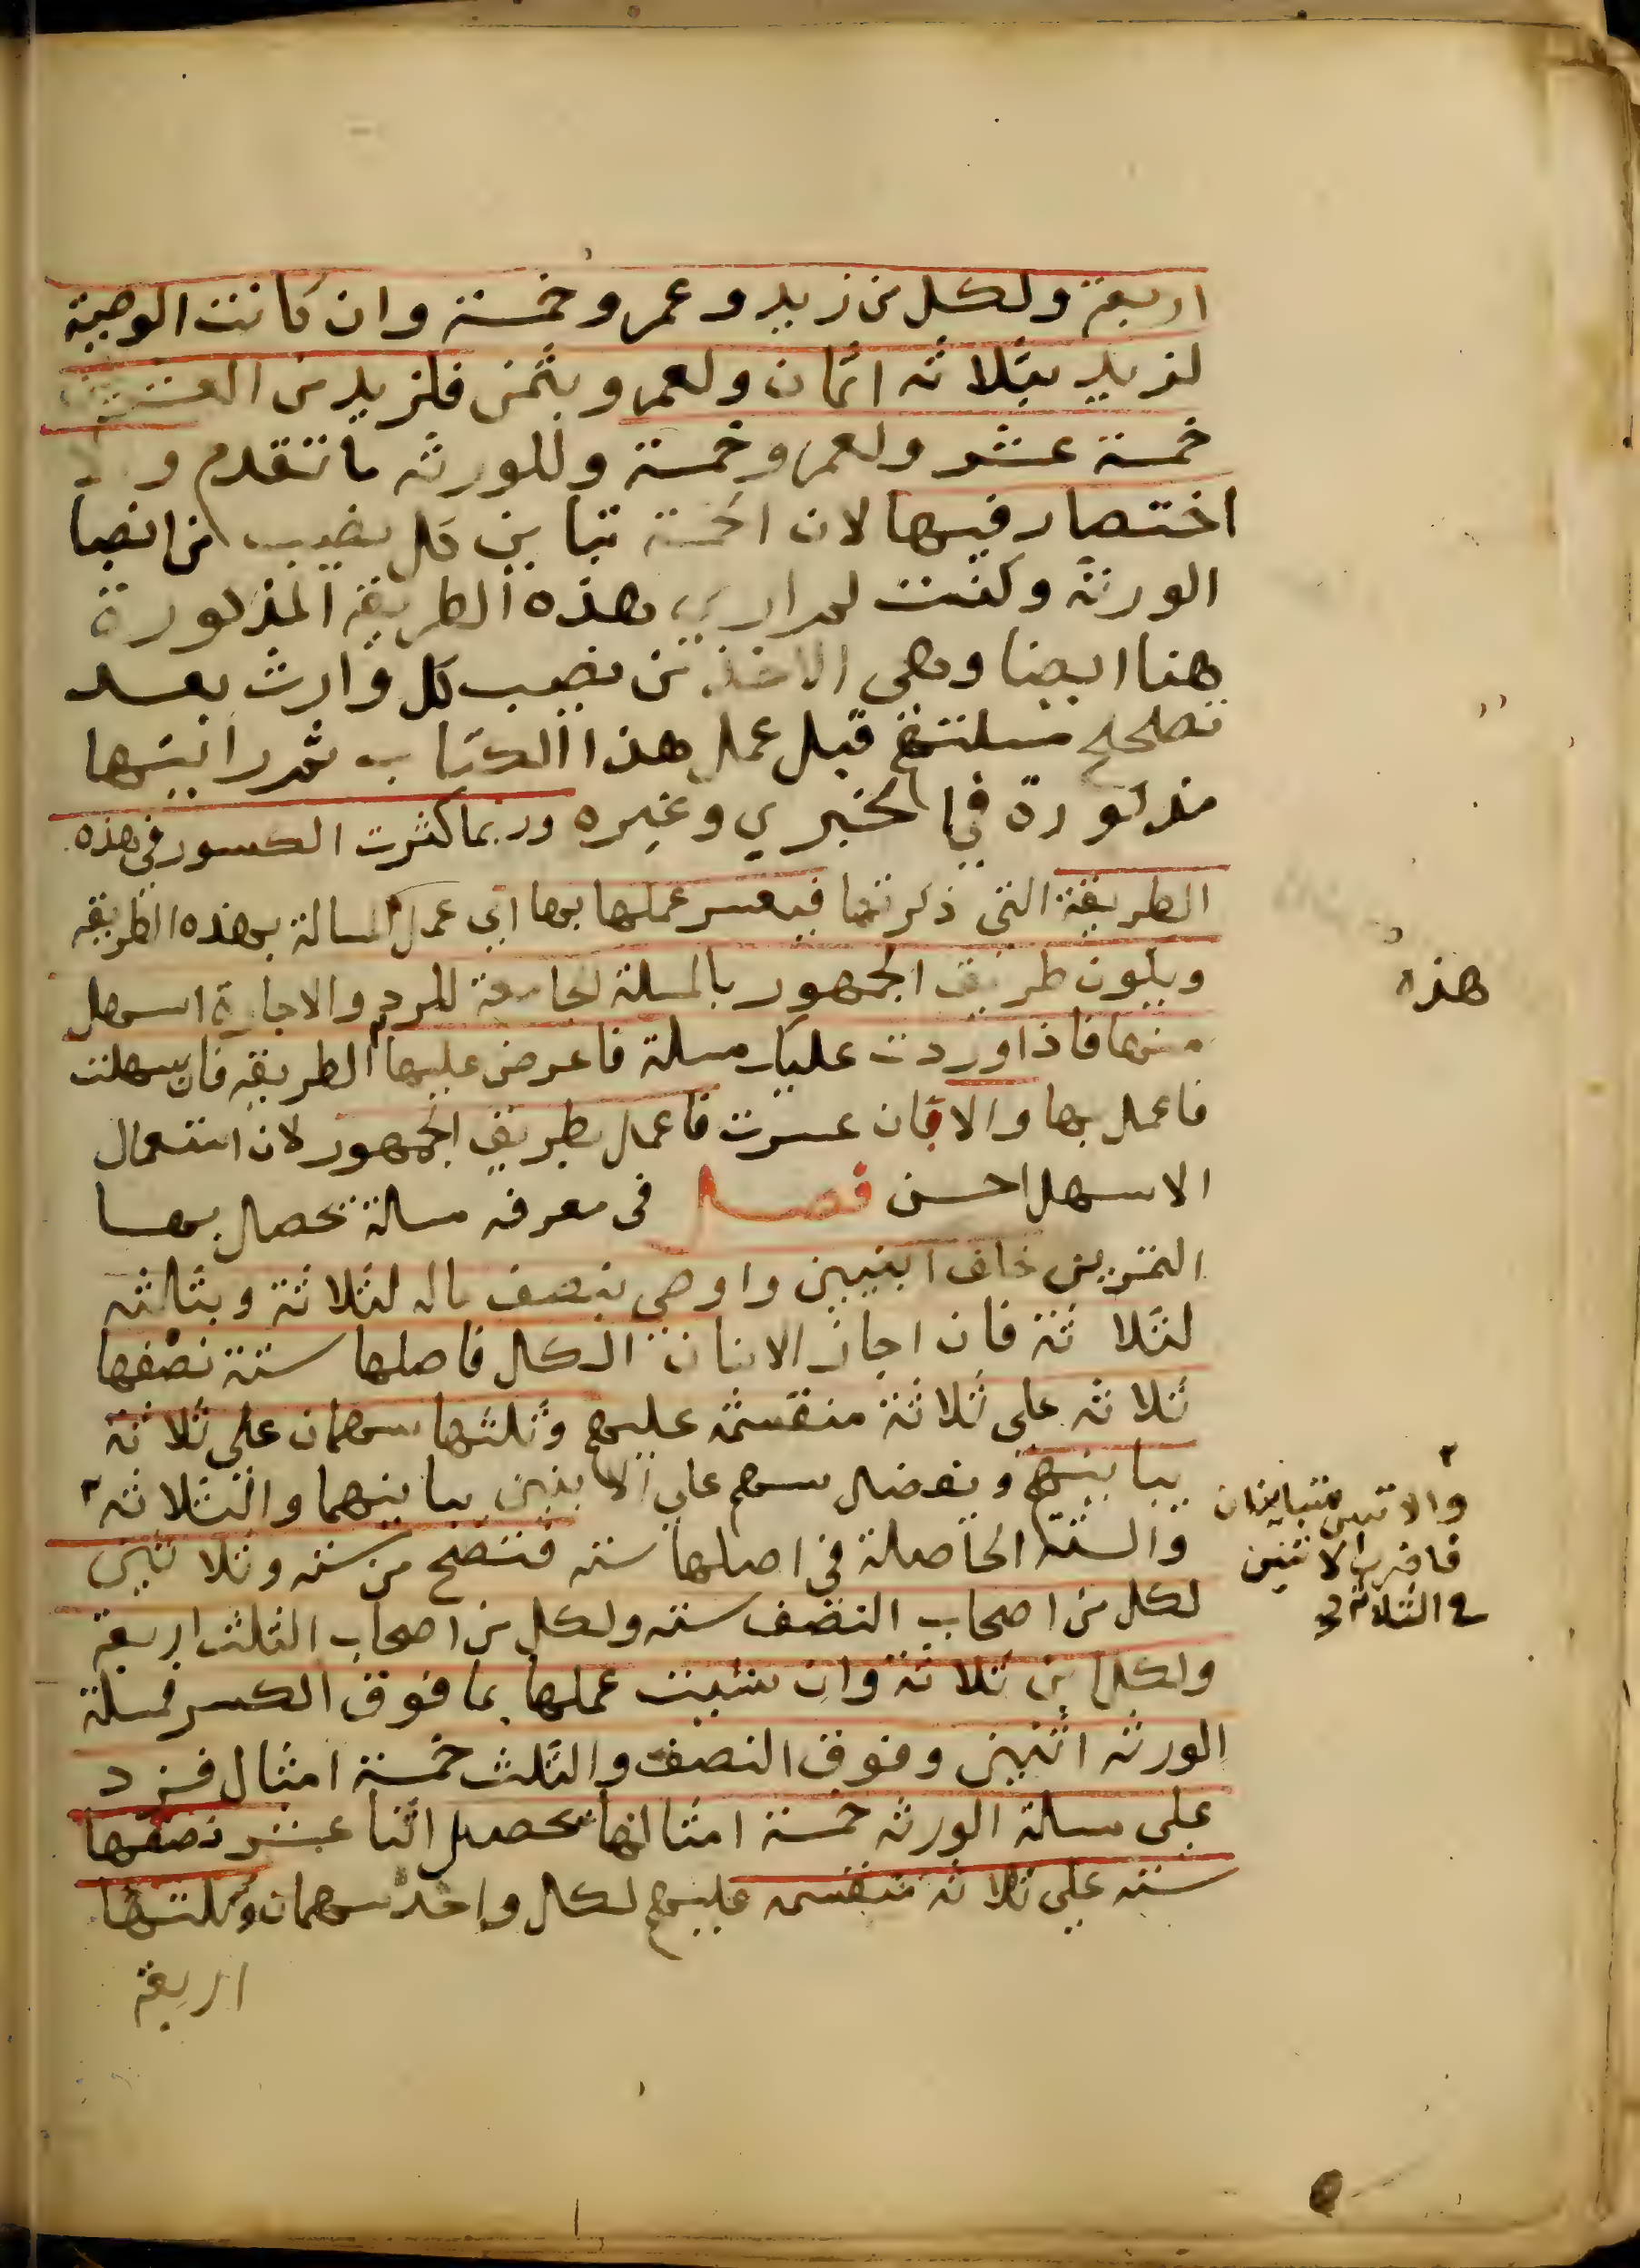 اربعة ولكل من زيد وعمرو خمسة وان كانت الوصية
لزيد بثلاثة اثمان ولعمرو بثمن فلزيد من العشرين
خمسة عشر ولعمرو خمسة وللورثة ما تقدم و
اختصار فيها لان الخمسة تباين كل نصيب من انصبا
الورثة وكنت لم ار هذه الطريقة المذكورة
هنا ايضا وهى الاخذ من نصيب كل وارث بعد
تصحيح مسلتهم قبل عمل هذا الكتاب ثم رايتها
مذكورة في الخبري وغيره وربما كثرت الكسور فى هذه
الطريقة التى ذكرتها فيعسر عملها بها اي عمل المسالة بهذه الطريقة
ويكون طريق الجمهور بالمسلة الجامعة للرد والاجازة اسهل
منها فاذا وردت عليك مسلة فاعرض عليها الطريقة فان سهلت
فاعمل بها والا فان عسرت فاعمل بطريق الجمهور لان استعمال
الاسهل احسن فصل فى معرفة مسالة تحصل بها
التمرين خلف ابنين واوصى بنصف ماله لثلاثة وبثلثه
لثلاثة فان اجاز الابنان الكل فاصلها ستة نصفها
ثلاثة على ثلاثة منقسمة عليهم وثلثها سهمان على ثلاثة
يباينهم ويفضل سهم على الابنين يباينهما والثلاثة
والستة الحاصلة في اصلها ستة فتصح من ستة وثلاثين
لكل من اصحاب النصف ستة ولكل من اصحاب الثلث اربعة
ولكل ابن ثلاثة وان شئت عملها بما فوق الكسر فمسلة
الورثة اثنين وفوق النصف والثلث خمسة امثال فزد
على مسلة الورثة خمسة امثالها تحصل اثنا عشر نصفها
ستة على ثلاثة منقسمة عليهم لكل واحد سهمان وثلثها
اربعة
هذه
والاثنين متباينان
فاضرب الاثنين
في الثلاثة